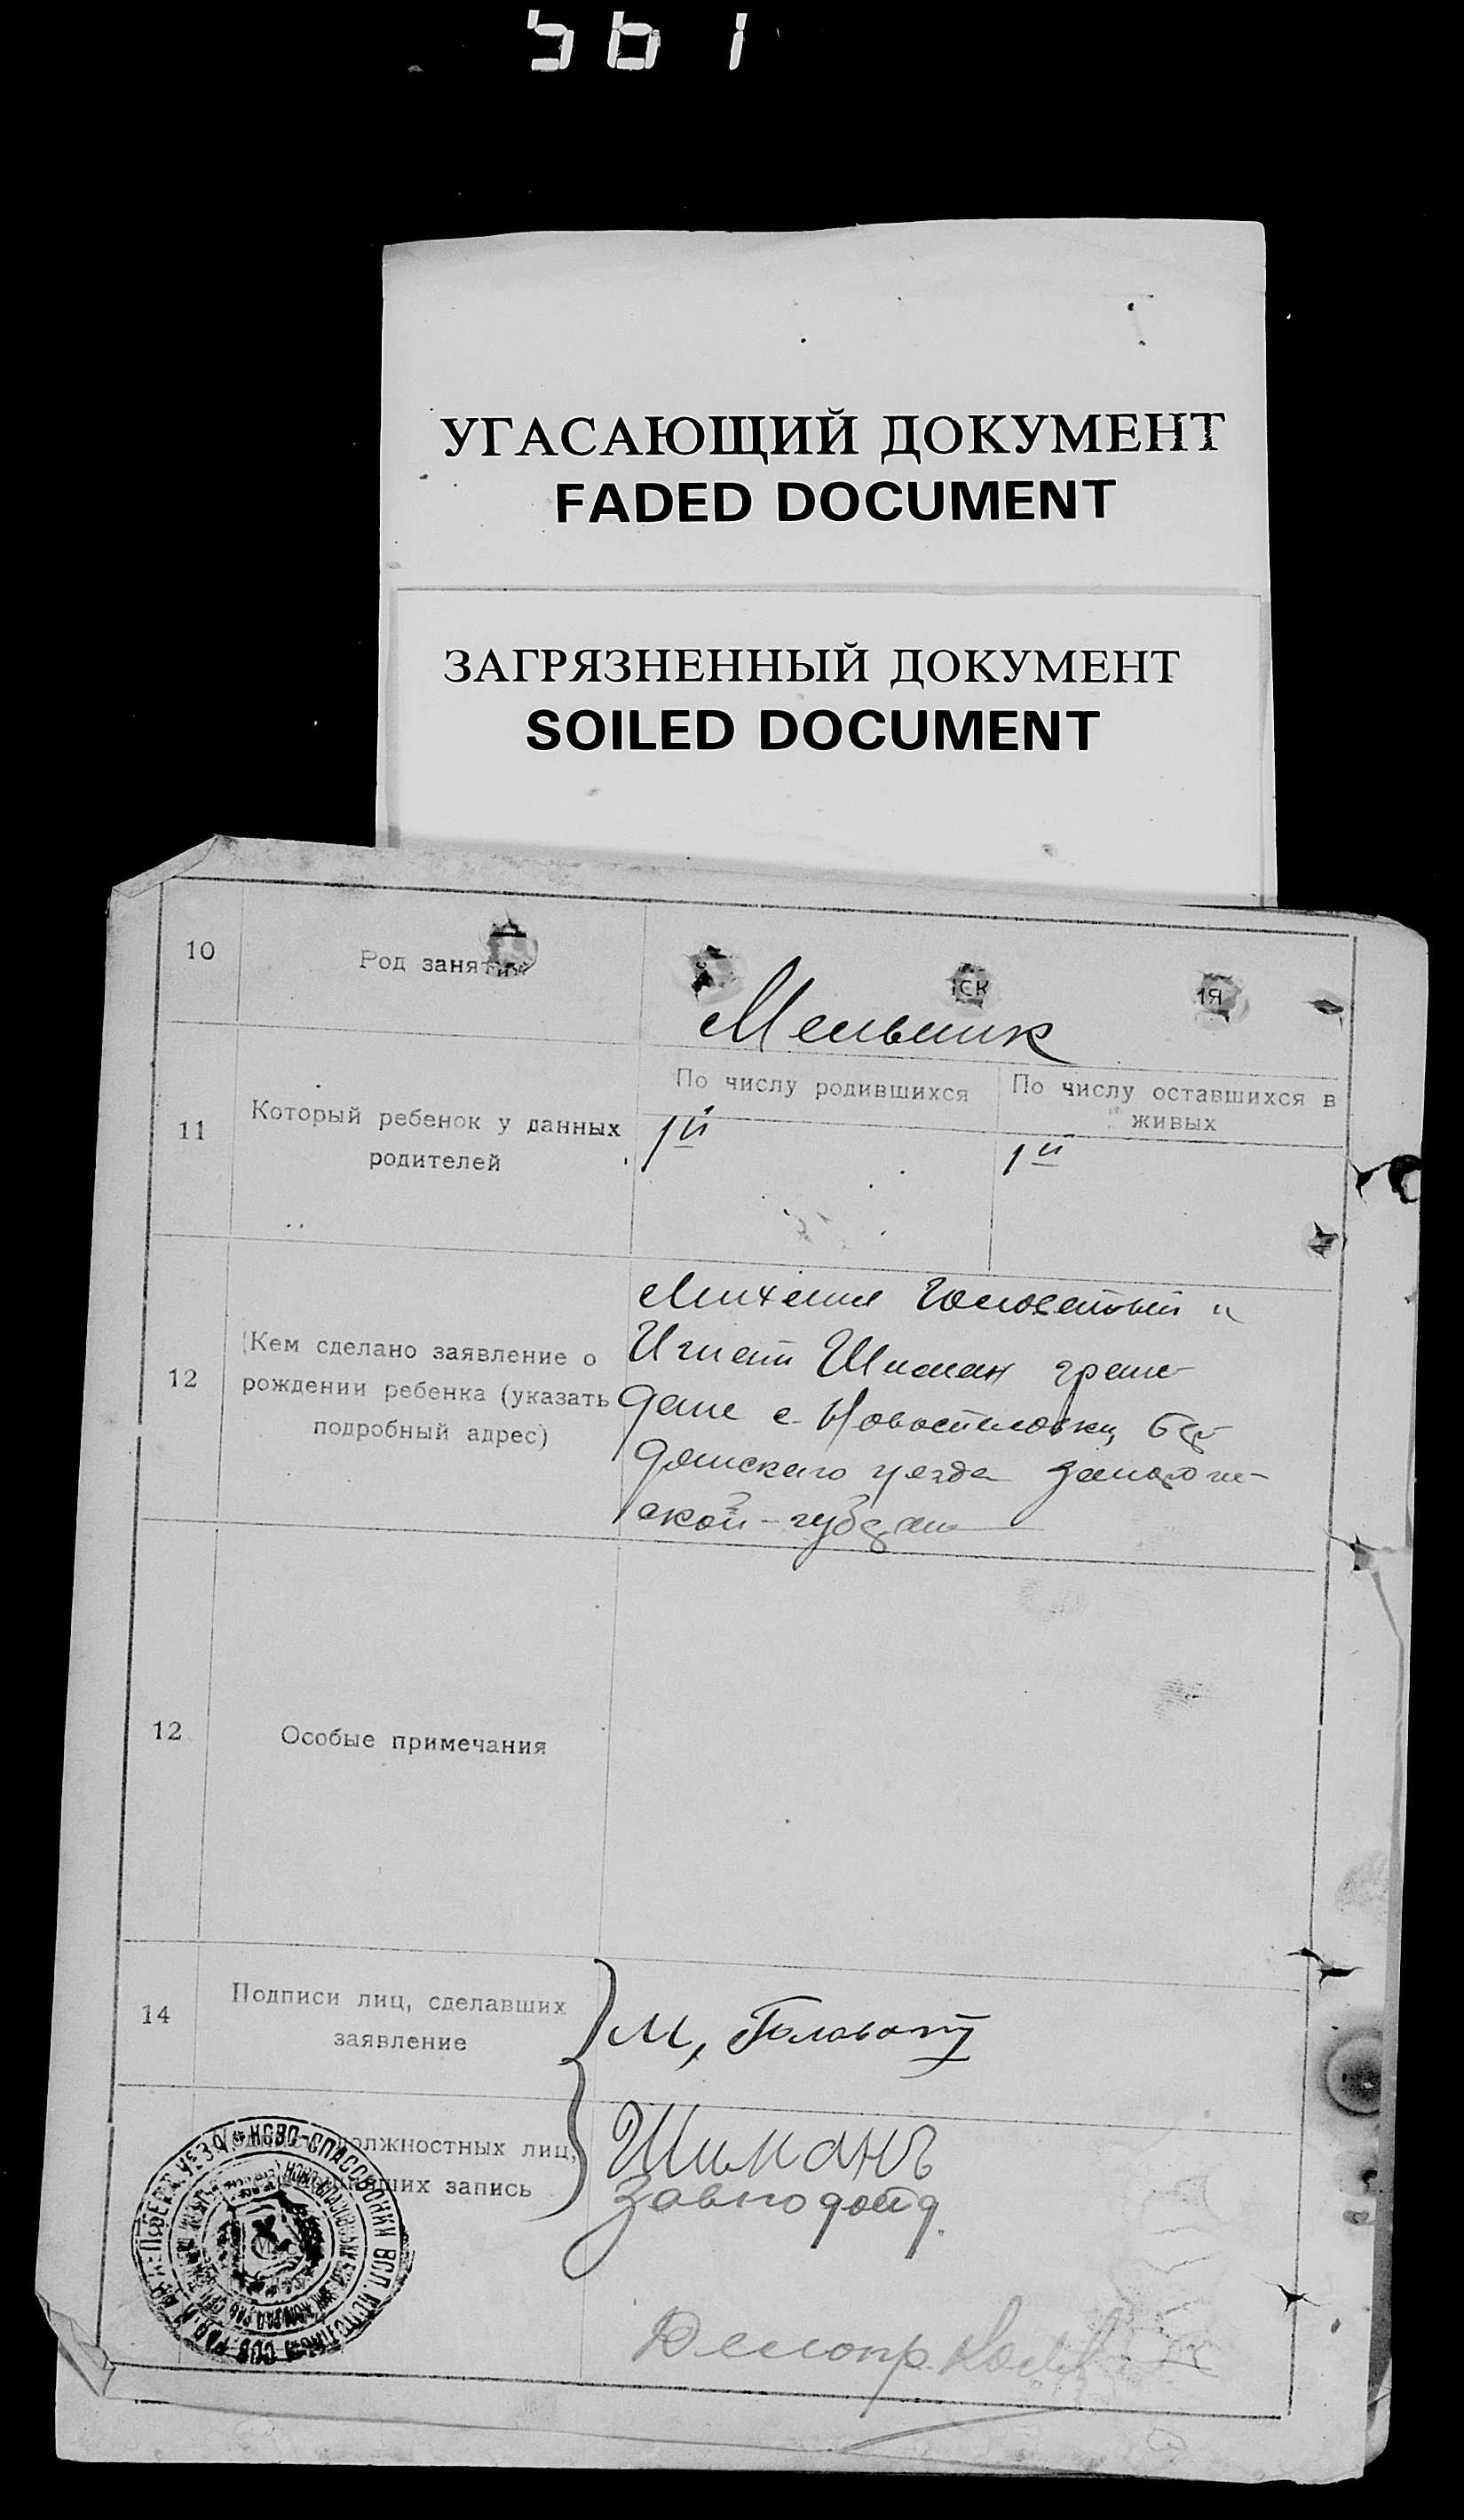 561
УГАСАЮЩИЙ ДОКУМЕНТ
FADED DOCUMENT
ЗАГРЯЗНЕННЫЙ ДОКУМЕНТ
SOILED DOCUMENT
10
Род занятия
Мельник
11
Который ребенок у данных
родителей
По числу родившихся
По числу оставшихся в
живых
1й
1й
12
(Кем сделано заявление о
рождении ребенка (указать
подробный адрес)
Михаил Головатый и
Игнат Шиман граж-
дане с. Новоспасовки, Бер-
дянского уезда Запорож-
ской губернии
12
Особые примечания
14
Подписи лиц, сделавших
заявление
М, Головат
должностных лиц,
запись
Шиманъ
Завподотд.
Делопр.